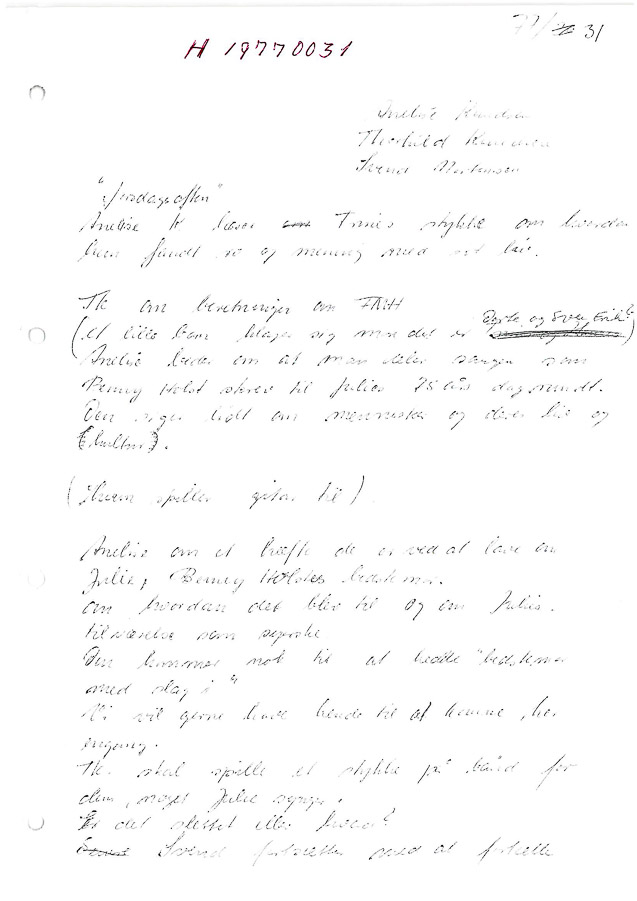 77/31
H 19770031
Anelise Knudsen
Thorkild Knudsen
Svend Mortensen
"Jordagsaften"
Anelise K læser Trines stykke om hvordan
hun fandt ro og mening med sit liv.
Tk om beretninger om FNH
(et lille barn klager sig men det er Dorte og Sven Erik?)
Anelise beder om at man deler sangen som
Benny Holst skrev til Julies 75 års dag rundt.
Den siger lidt om mennesker og deres liv og
(kultur).
(Hvem spiller guitar til)
Anelise om et hæfte de er ved at lave om
Julie, Benny Holsts bedstemor.
om hvordan det blev til og om Julies
tilværelse som
Den kommer nok til at hedde "bedstemor
med slag i"
Vi vil gerne have hende til at komme, her
engang.
Tk. skal spille et stykke på bånd for
dem, noget Julie synger.
Er det slettet eller hvad?
Svend fortsætter med at fortælle